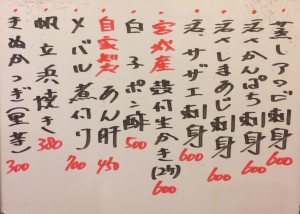 蒸しアワビ刺身 600
かんぱち刺身 600
しまあじ刺身 600
サザエ刺身 600
宮城産 殻付生かき(2ケ) 600
白子ポン酢 500
自家製あん肝 450
メバル煮付け 700
帆立浜焼き 380
きぬかつぎ(里芋) 300